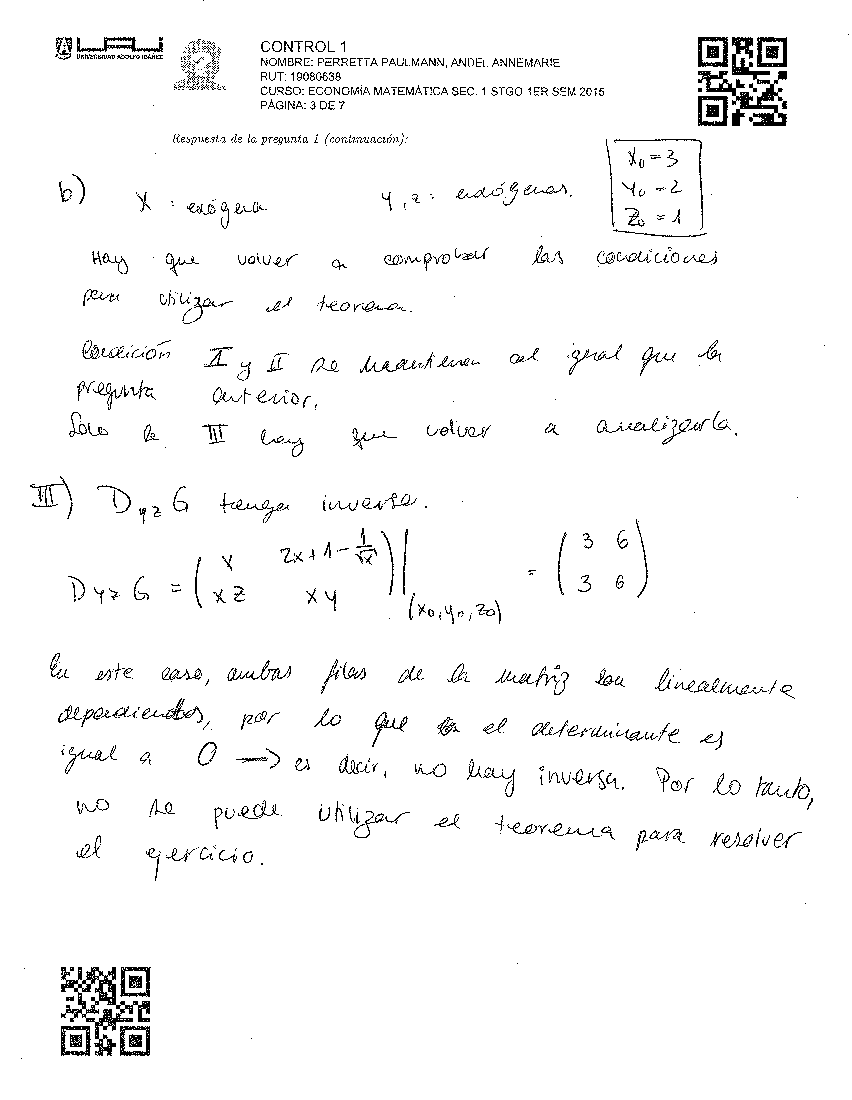 UNIVERSIDAD ADOLFO IBÁÑEZ
CONTROL 1
NOMBRE: PERRETTA PAULMANN, ANDEL ANNEMARIE
RUT: 19080638
CURSO: ECONOMÍA MATEMÁTICA SEC. 1 STGO 1ER SEM 2015
PÁGINA: 3 DE 7
Respuesta de la pregunta 1 (continuación):
X₀ = 3
Y₀ = 2
Z₀ = 1
b) X : exógena Y, z : endógenas.
Hay que volver a comprobar las condiciones
para utilizar el teorema.
Condición I y II se mantienen al igual que la
pregunta anterior.
Solo la III hay que volver a analizarla.
III) D yz G tenga inversa.
D yz G = ( x 2x + 1 - 1/√x ; xz xy ) | (x₀, y₀, z₀) = ( 3 6 ; 3 6 )
En este caso, ambas filas de la matriz son linealmente
dependientes, por lo que el determinante es
igual a 0 → es decir, no hay inversa. Por lo tanto,
no se puede utilizar el teorema para resolver
el ejercicio.